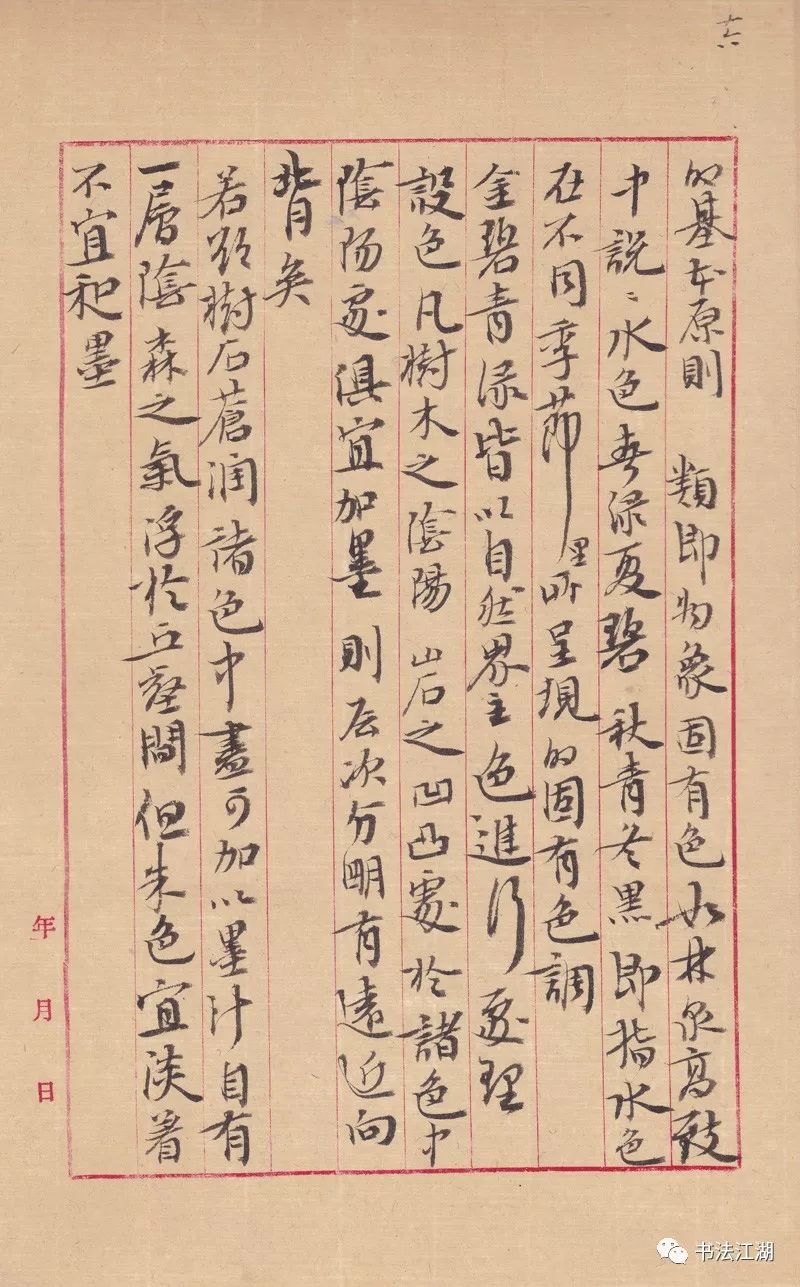 十六
的基本原則 類即物象固有色如林泉高致
中説:水色春渌夏碧秋青冬黑即指水色
在不同季節里所呈現的固有色調
金碧青渌皆以自然界主色進行處理
設色凡樹木之陰陽山石之凹凸處於諸色中
陰陽處俱宜加墨則层次分明有遠近向
背矣
若欲樹石蒼润諸色中盡可加以墨汁自有
一層陰森之氣浮於丘壑間但朱色宜淡着
不宜和墨
年 月 日
书法江湖